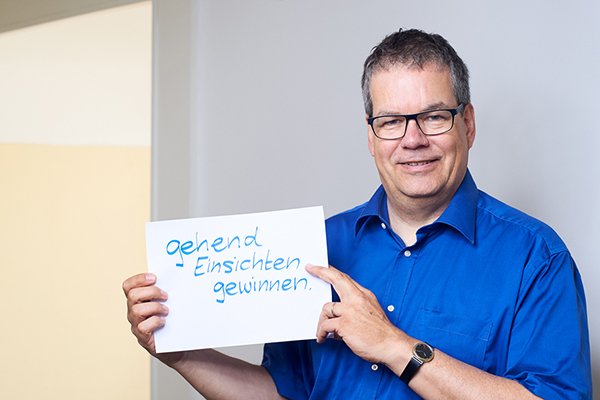 gehend
Einsichten
gewinnen.